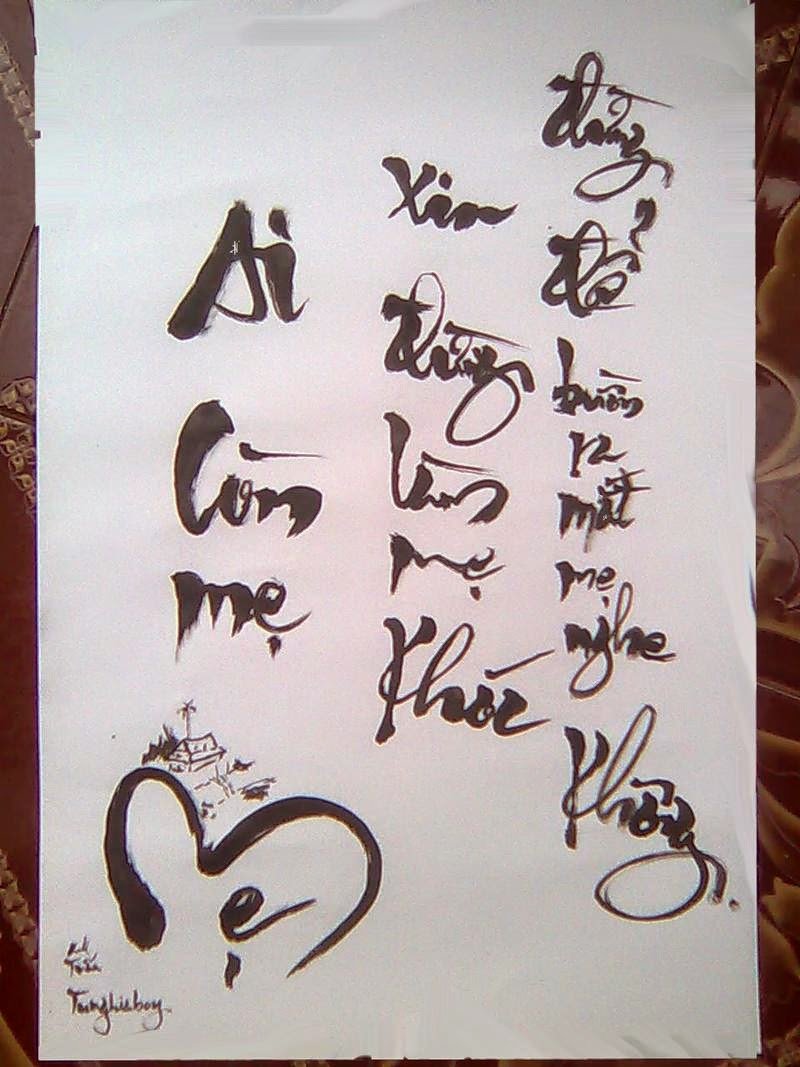 Ai
Còn
mẹ
Xin
đừng
làm
mẹ
Khóc
đừng
để
buồn
ra
mắt
mẹ
nghe
Không.
Mẹ